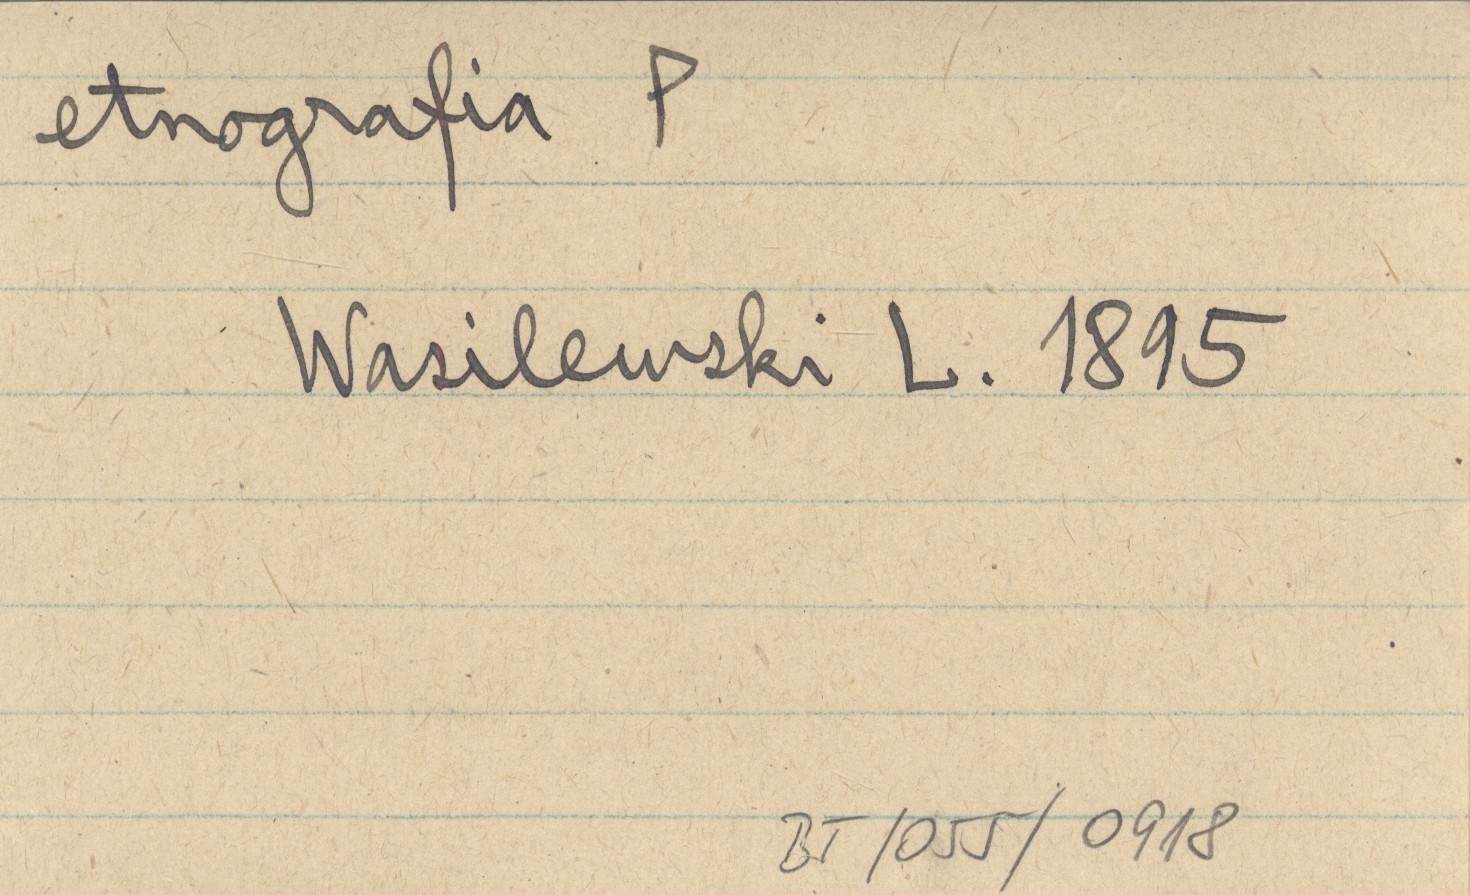 etnografia P
Wasilewski L. 1895
BT/055/0918